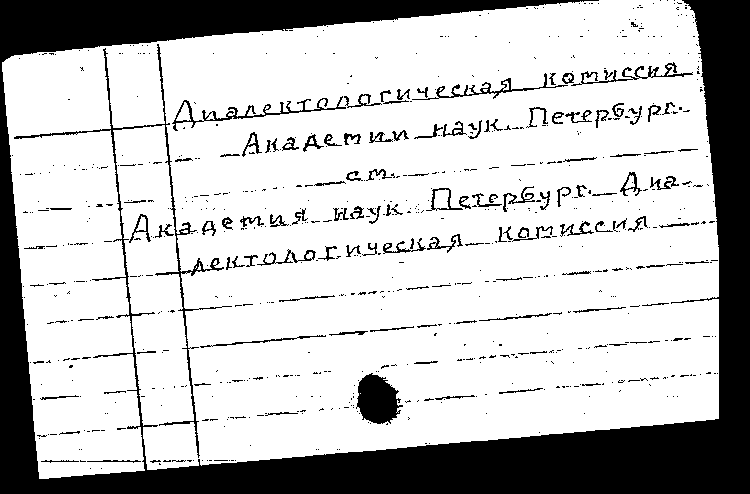 Диалектологическая комиссия
Академии наук. Петербург.
см.
Академия наук. Петербург. Диа-
лектологическая комиссия